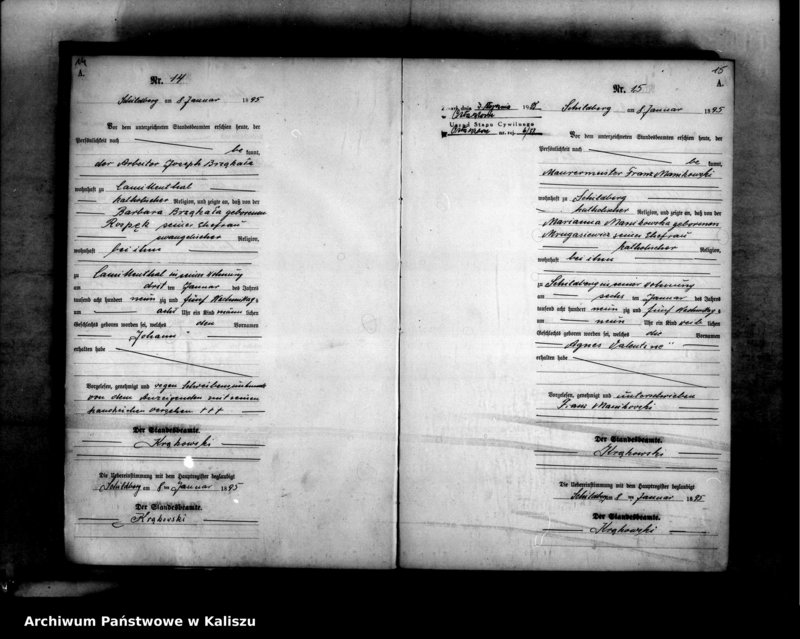 14
A.
Nr. 14
Schildberg am 8 Januar 1895
Vor dem unterzeichneten Standesbeamten erschien heute, der
Persönlichkeit nach
be kannt,
der Arbeiter Joseph
wohnhaft zu
katholischer Religion, und zeigte an, daß von der
Barbara geborenen
seiner Ehefrau
evangelischer Religion,
wohnhaft bei ihm
zu in seiner Wohnung
am dritten Januar des Jahres
tausend acht hundert neun zig und fünf Nachmittags
um acht Uhr ein Kind männ lichen
Geschlechts geboren worden sei, welches den Vornamen
"Johann"
erhalten habe
Vorgelesen, genehmigt und wegen Schreibensunkunde
von dem Anzeigenden mit seinem
Handzeichen versehen +++
Der Standesbeamte.
Krąkowski
Die Uebereinstimmung mit dem Hauptregister beglaubigt
Schildberg am 8 ten Januar 1895
Der Standesbeamte.
Krąkowski
15
A.
Nr. 15
Urząd Stanu Cywilnego
Schildberg am 8 Januar 1895
Vor dem unterzeichneten Standesbeamten erschien heute, der
Persönlichkeit nach
be kannt,
Maurermeister Franz Manikowski
wohnhaft zu Schildberg
katholischer Religion, und zeigte an, daß von der
Marianna Manikowska geborenen
seiner Ehefrau
katholischer Religion,
wohnhaft bei ihm
zu Schildberg in seiner Wohnung
am sechs ten Januar des Jahres
tausend acht hundert neun zig und fünf Nachmittags
um neun Uhr ein Kind weib lichen
Geschlechts geboren worden sei, welches Vornamen
"Agnes Valentine"
erhalten habe
Vorgelesen, genehmigt und unterschrieben
Franz Manikowski
Der Standesbeamte.
Krąkowski
Die Uebereinstimmung mit dem Hauptregister beglaubigt
Schildberg am 8 ten Januar 1895
Der Standesbeamte.
Krąkowski
Archiwum Państwowe w Kaliszu